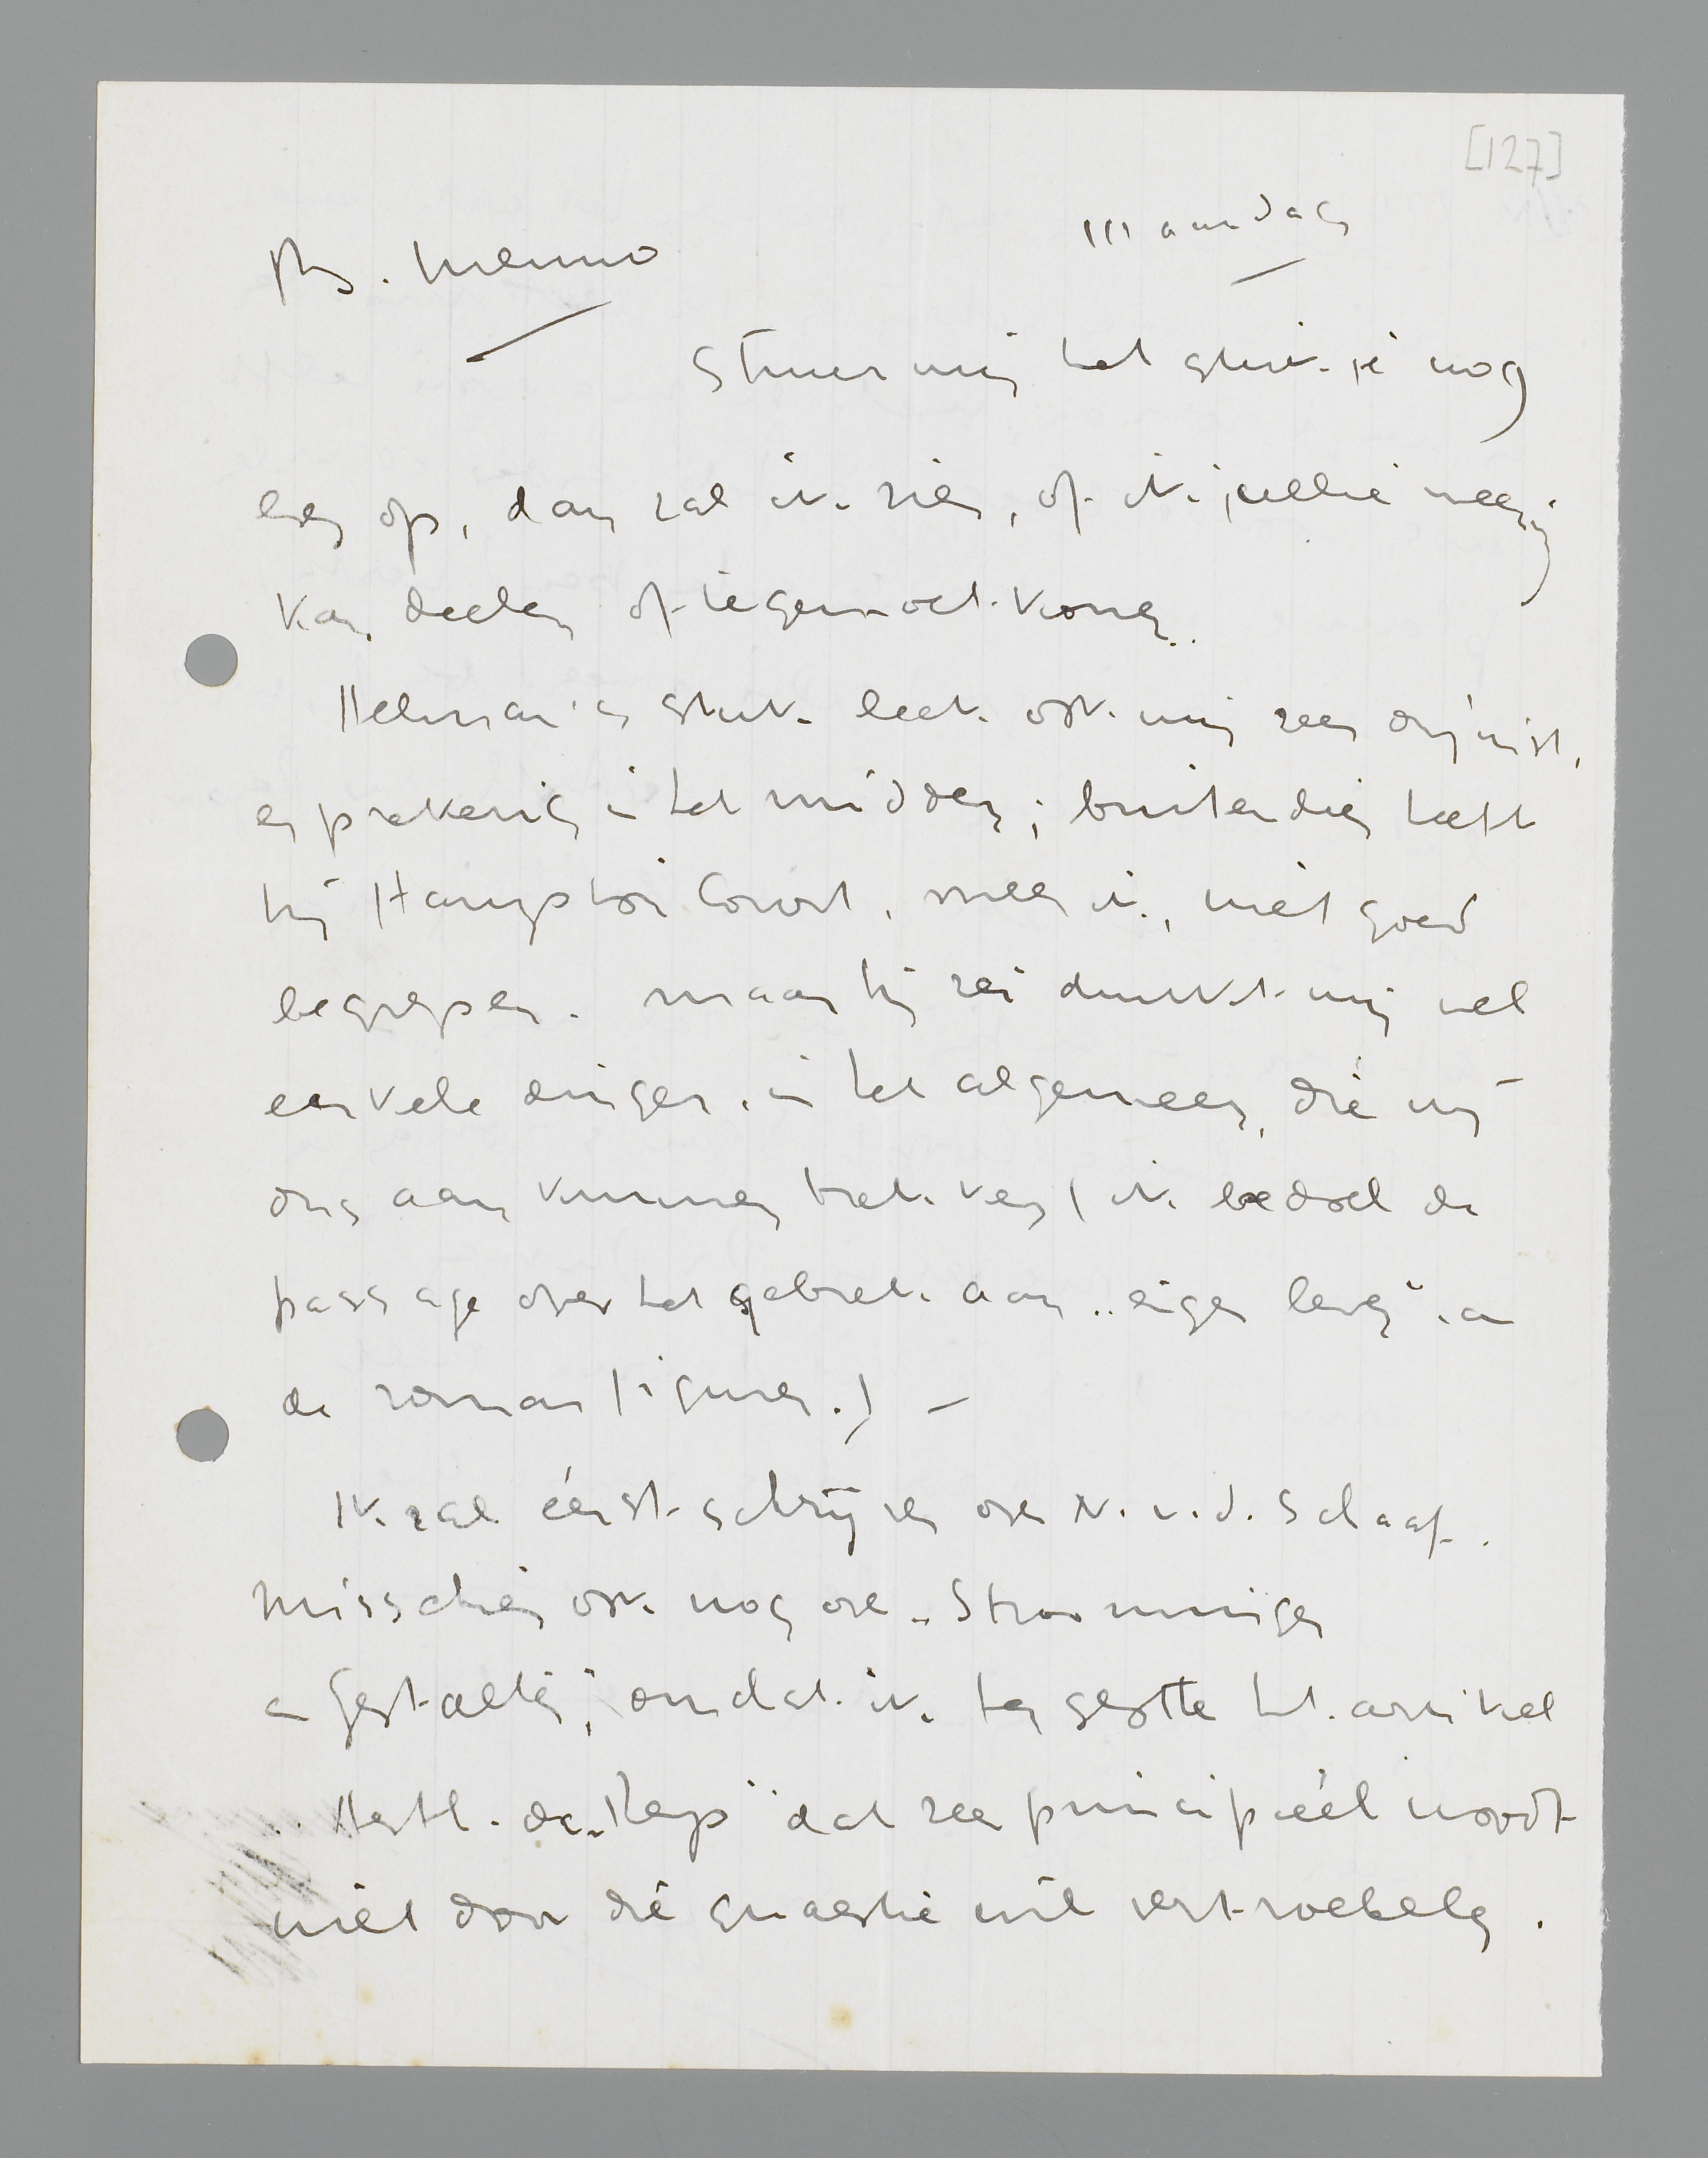 [127]
Maandag
B. Menno
Stuur mij het stukje nog
eens op, dan zal ik zien, of ik jullie meening
kan deelen of tegemoet komen.
Helman's stuk leek ook mij zeer onjuist,
en prekerig in het midden; buitendien heeft
hij Hampton Court, meen ik, niet goed
begrepen. Maar hij zei dunkt mij wel
enkele dingen, in het algemeen, die wij
ons aan kunnen trekken (ik bedoel de
passage over het gebrek aan „eigen leven" van
de romanfiguren.) —
Ik zal éérst schrijven over N. v. d. Schaaf.
Misschien ook nog over „Stroomingen
en Gestalten", omdat ik ten slotte het artikel
dat zeer principiëel wordt
niet door die quaestie wil vertroebelen.